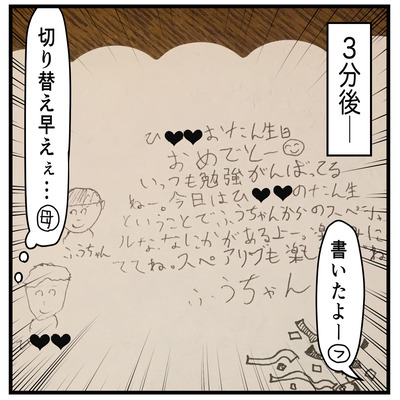 3分後―
切り替え早えぇ…
母
ひ♥♥おたん生日
おめでとー
いっつも勉強がんばってる
ねー。今日はひ♥♥のたん生
ということでふうちゃんからのスペシャ
ルなないかがあるよー。楽
にし
ててね。スペ
アリブも楽
ね
ふうちゃん
ふうちゃん
♥♥
書いたよー
フ